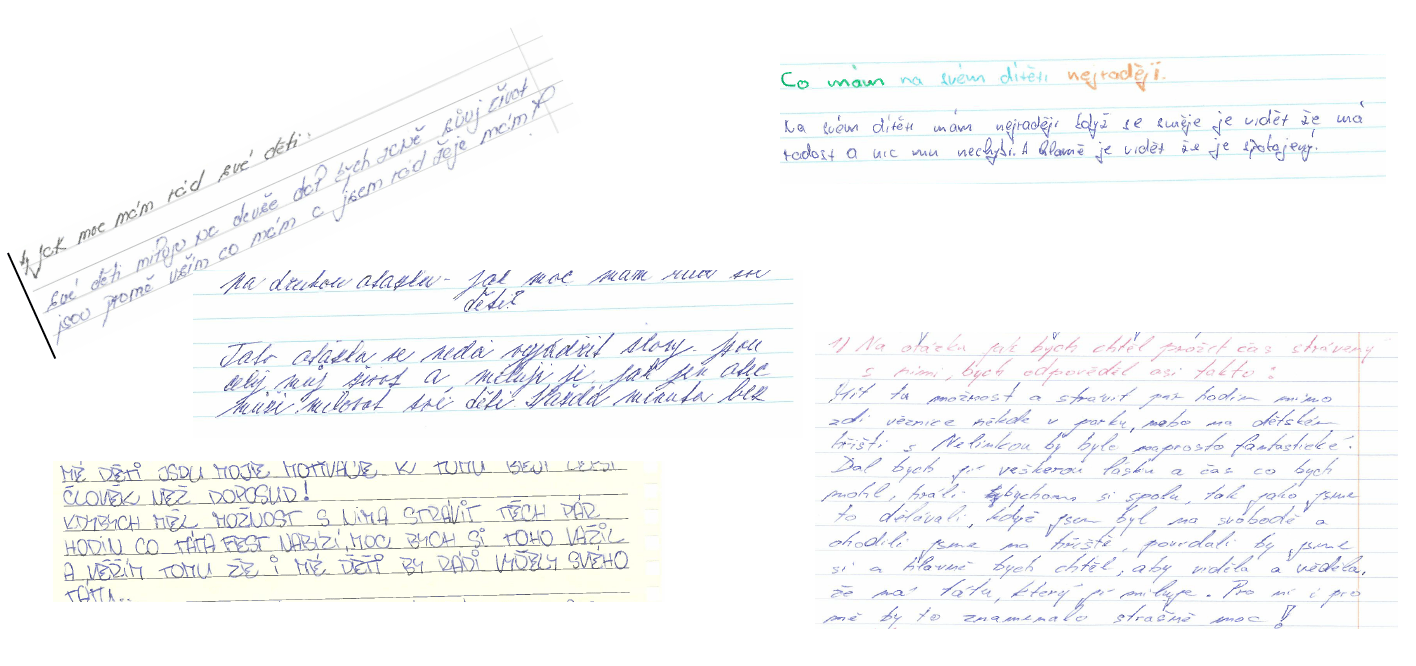 4, Jak moc mám rád své děti.
své děti miluju na devše dal bych za ně svůj život
jsou promě vším co mám a jsem rád žeje mám
Co mám na svém dítěti nejraději.
Na svém dítěti mám nejraději když se směje je vidět že má
radost a nic mu nechybí. A hlavně je vidět že je spokojený.
Na druhou otázku - jak moc mám rád své
děti?
Tato otázka se nedá vyjádřit slovy. Jsou
celý můj život a miluji je, jak jen otec
může milovat své děti. Každá minuta bez
MÉ DĚTI JSOU MOJE MOTIVACE K TOMU BÝT LEPŠÍ
ČLOVĚK NEŽ DOPOSUD!
KDYBYCH MĚL MOŽNOST S NIMA STRÁVIT TĚCH PÁR
HODIN CO TÁTA FEST NABÍZÍ, MOC BYCH SI TOHO VÁŽIL
A VĚŘÍM TOMU ŽE I MÉ DĚTI BY RÁDI VIDĚLY SVÉHO
TÁTU..
1) Na otázku jak bych chtěl prožít čas strávený
s nimi, bych odpověděl asi takto:
Mít tu možnost a strávit pár hodin mimo
zdi věznice někde v parku, nebo na dětském
hřišti s Nelinkou by bylo naprosto fantastické.
Dal bych jí veškerou lásku a čas co bych
mohl, hráli bychom si spolu, tak jako jsme
to dělávali, když jsem byl na svobodě a
chodili jsme na hřiště, povídali by jsme
si a hlavně bych chtěl, aby viděla a věděla,
že má tátu, který jí miluje. Pro ni i pro
mě by to znamenalo strašně moc!